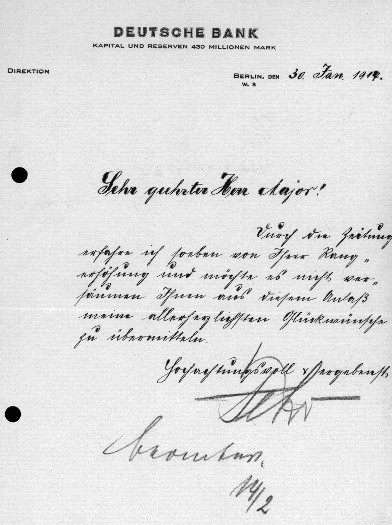 DEUTSCHE BANK
KAPITAL UND RESERVEN 430 MILLIONEN MARK
DIREKTION
BERLIN, DEN 30. Jan. 1914
W. 8
Sehr geehrter Herr Major!
Durch die Zeitung
erfahre ich soeben von Ihrer Rang-
erhöhung und möchte es nicht ver-
säumen Ihnen aus diesem Anlaß
meine allerherzlichsten Glückwünsche
zu übermitteln.
Hochachtungsvoll & ergebenst
14/2